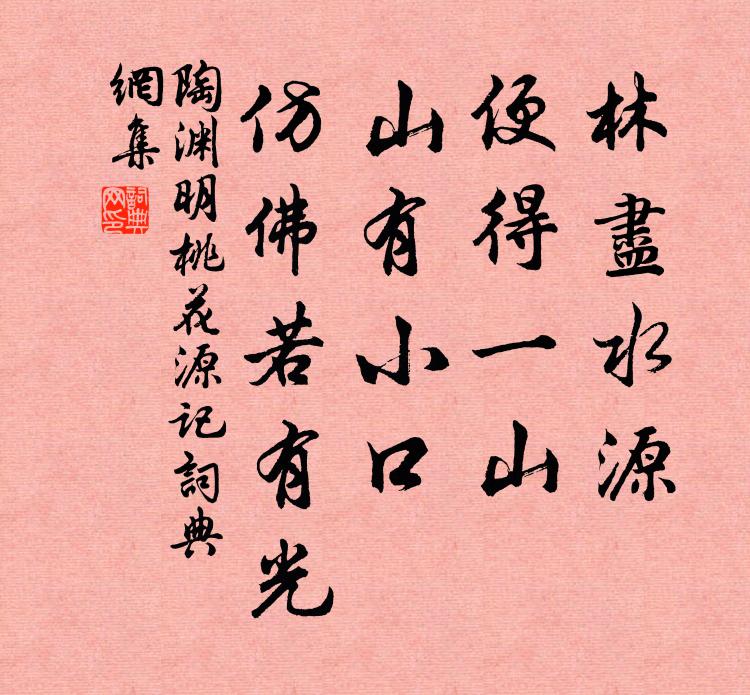 林盡水源
便得一山
山有小口
仿佛若有光
陶淵明桃花源記詞典
網集
詞典
网印